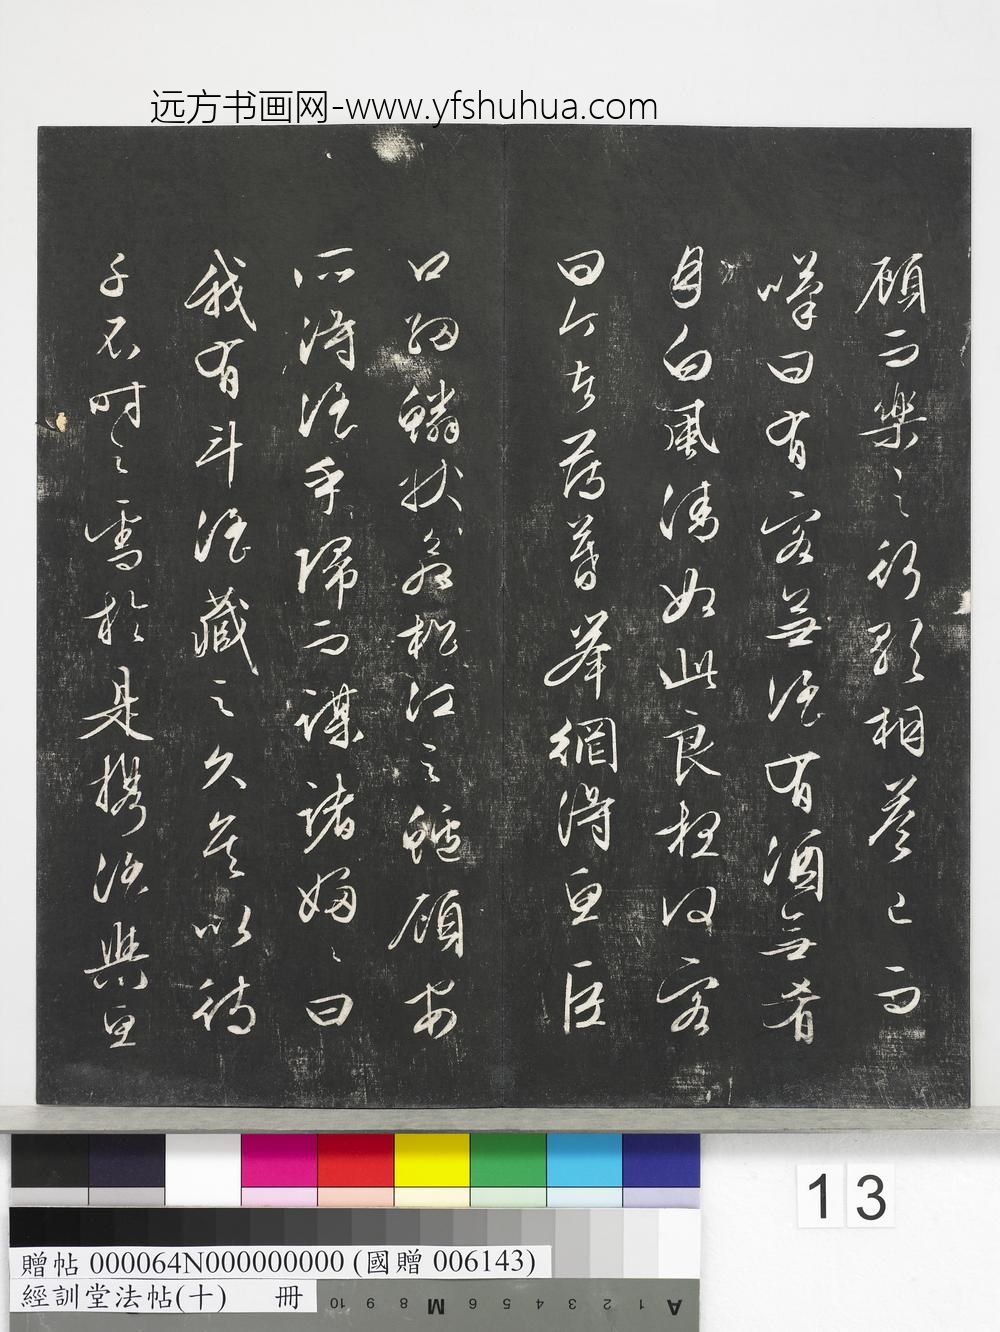 远方书画网-www.yfshuhua.com
顧而樂之行歌相答已而
嘆曰有客無酒有酒無肴
月白風清如此良夜何客
曰今者薄暮舉網得魚巨
口細鱗狀松江之鱸顧安
所得酒乎歸而謀諸婦〻曰
我有斗酒藏之久矣以待
子不時之需於是携酒與魚
13
贈帖 000064N000000000 (國贈 006143)
經訓堂法帖(十) 冊
10 9 8 M 6 5 4 3 2 1 A